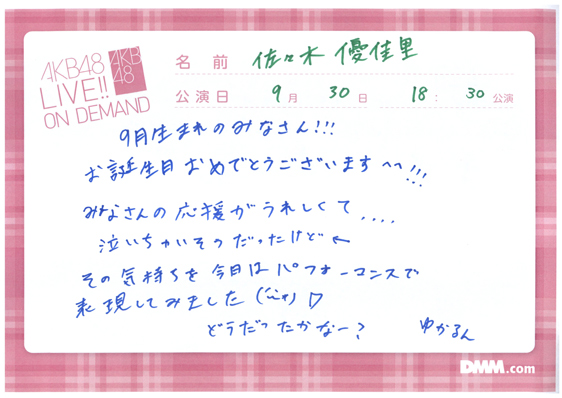 AKB48
LIVE!!
ON DEMAND
AKB
48
名前 佐々木 優佳里
公演日 9月 30日 18:30公演
9月生まれのみなさん!!!
お誕生日おめでとうございます^^!!!
みなさんの応援がうれしくて....
泣いちゃいそうだったけど←
その気持ちを今日はパフォーマンスで
表現してみました
どうだったかなー?
ゆかるん
DMM.com